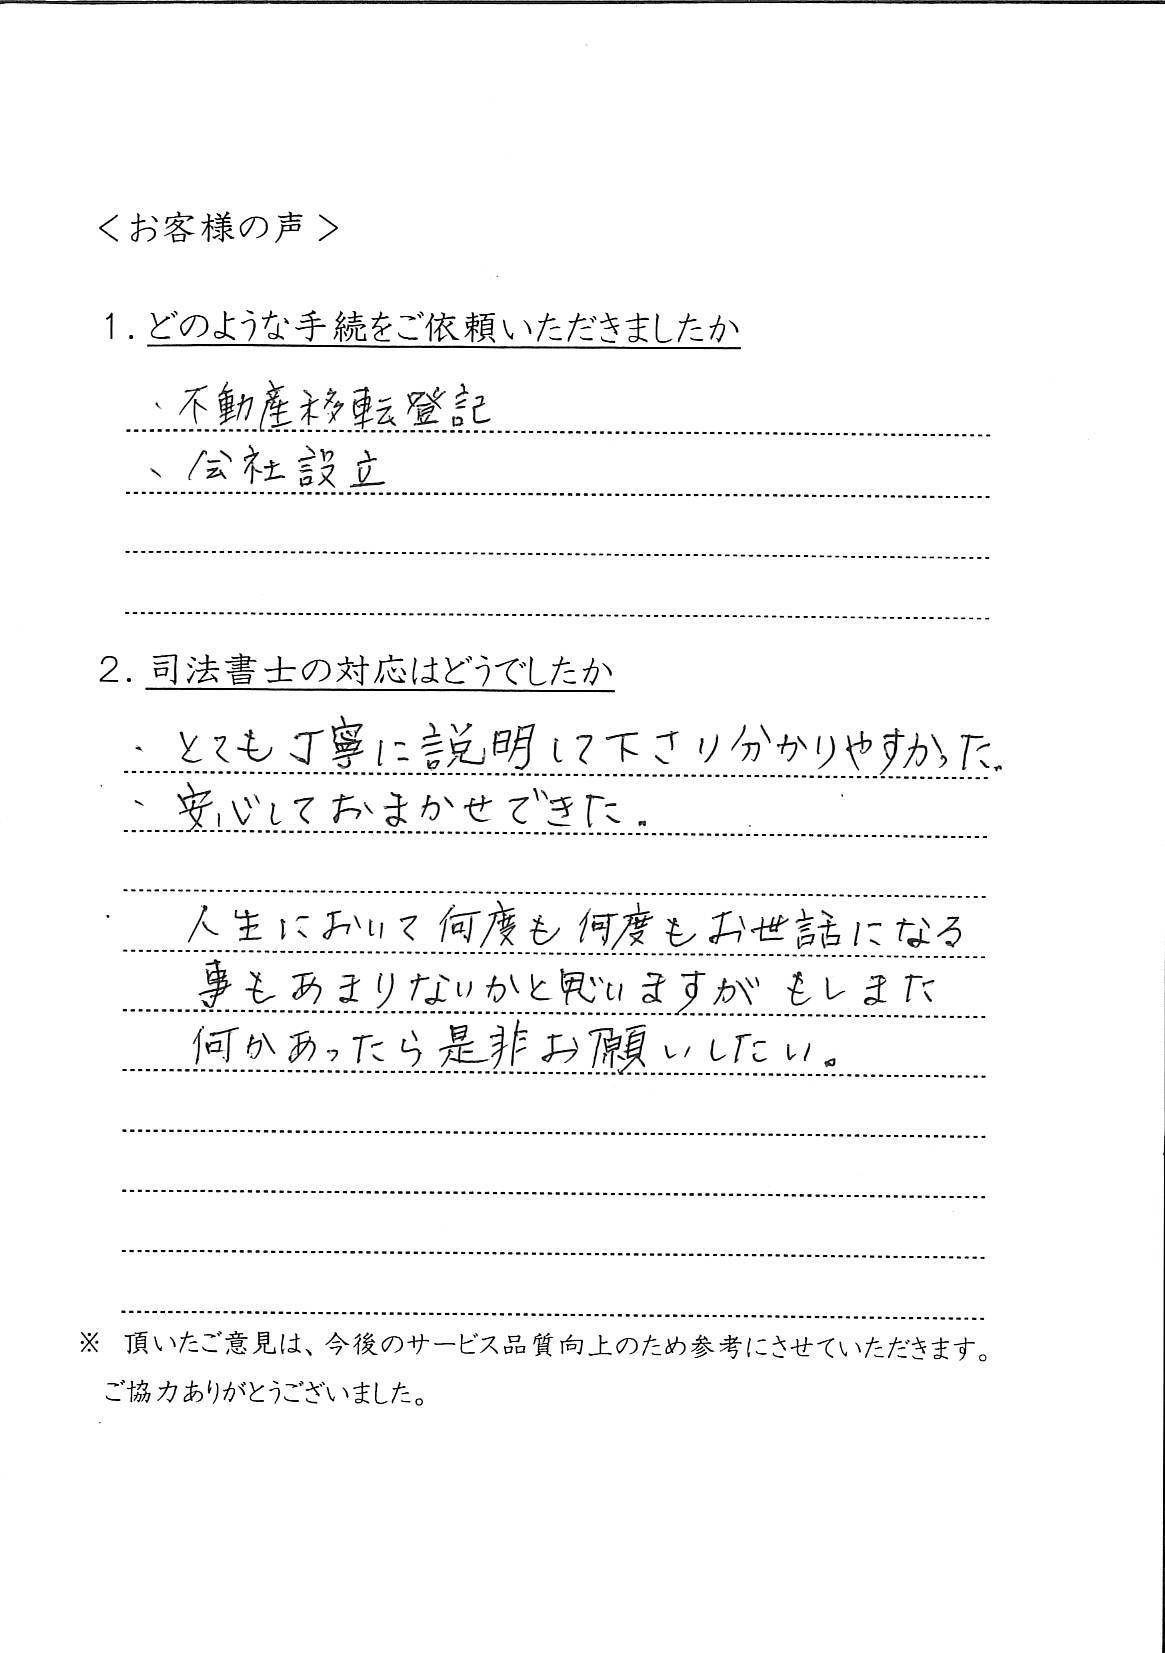 ＜お客様の声＞
１．どのような手続をご依頼いただきましたか
、不動産移転登記
、会社設立
２．司法書士の対応はどうでしたか
、とても丁寧に説明して下さり分かりやすかった。
、安心しておまかせできた。
人生において何度も何度もお世話になる
事もあまりないかと思いますがもしまた
何かあったら是非お願いしたい。
※　頂いたご意見は、今後のサービス品質向上のため参考にさせていただきます。
ご協力ありがとうございました。